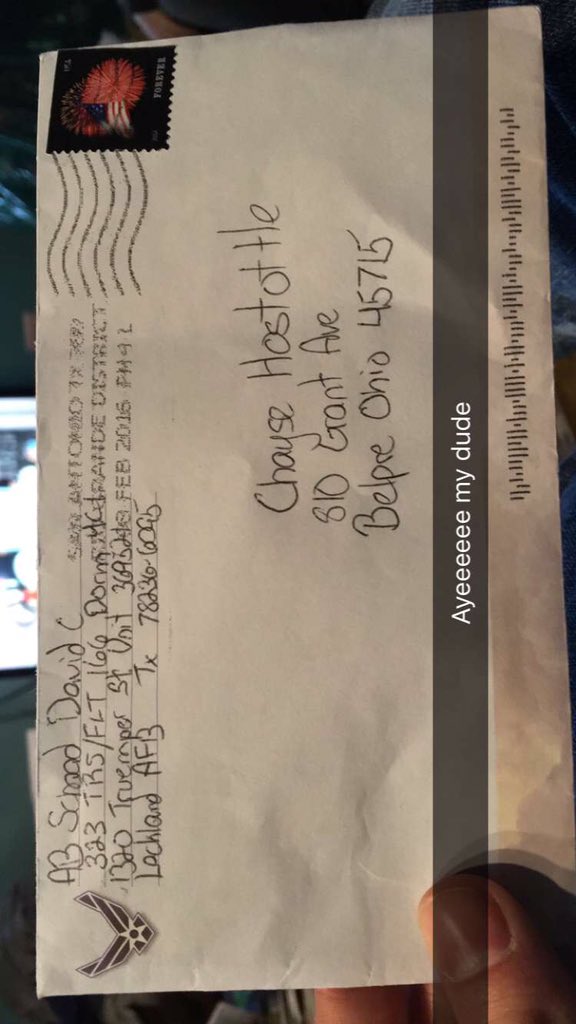 AB Schaad David C
323 TRS/FLT 166 Dorm
1320 Truemper St Unit
Lackland AFB Tx 78236-6095
SAN ANTONIO TX
RIO GRANDE DISTRICT
FEB 2016 PM
FOREVER
Chayse Hostottle
810 Grant Ave
Belpre Ohio 45715
Ayeeeeeee my dude